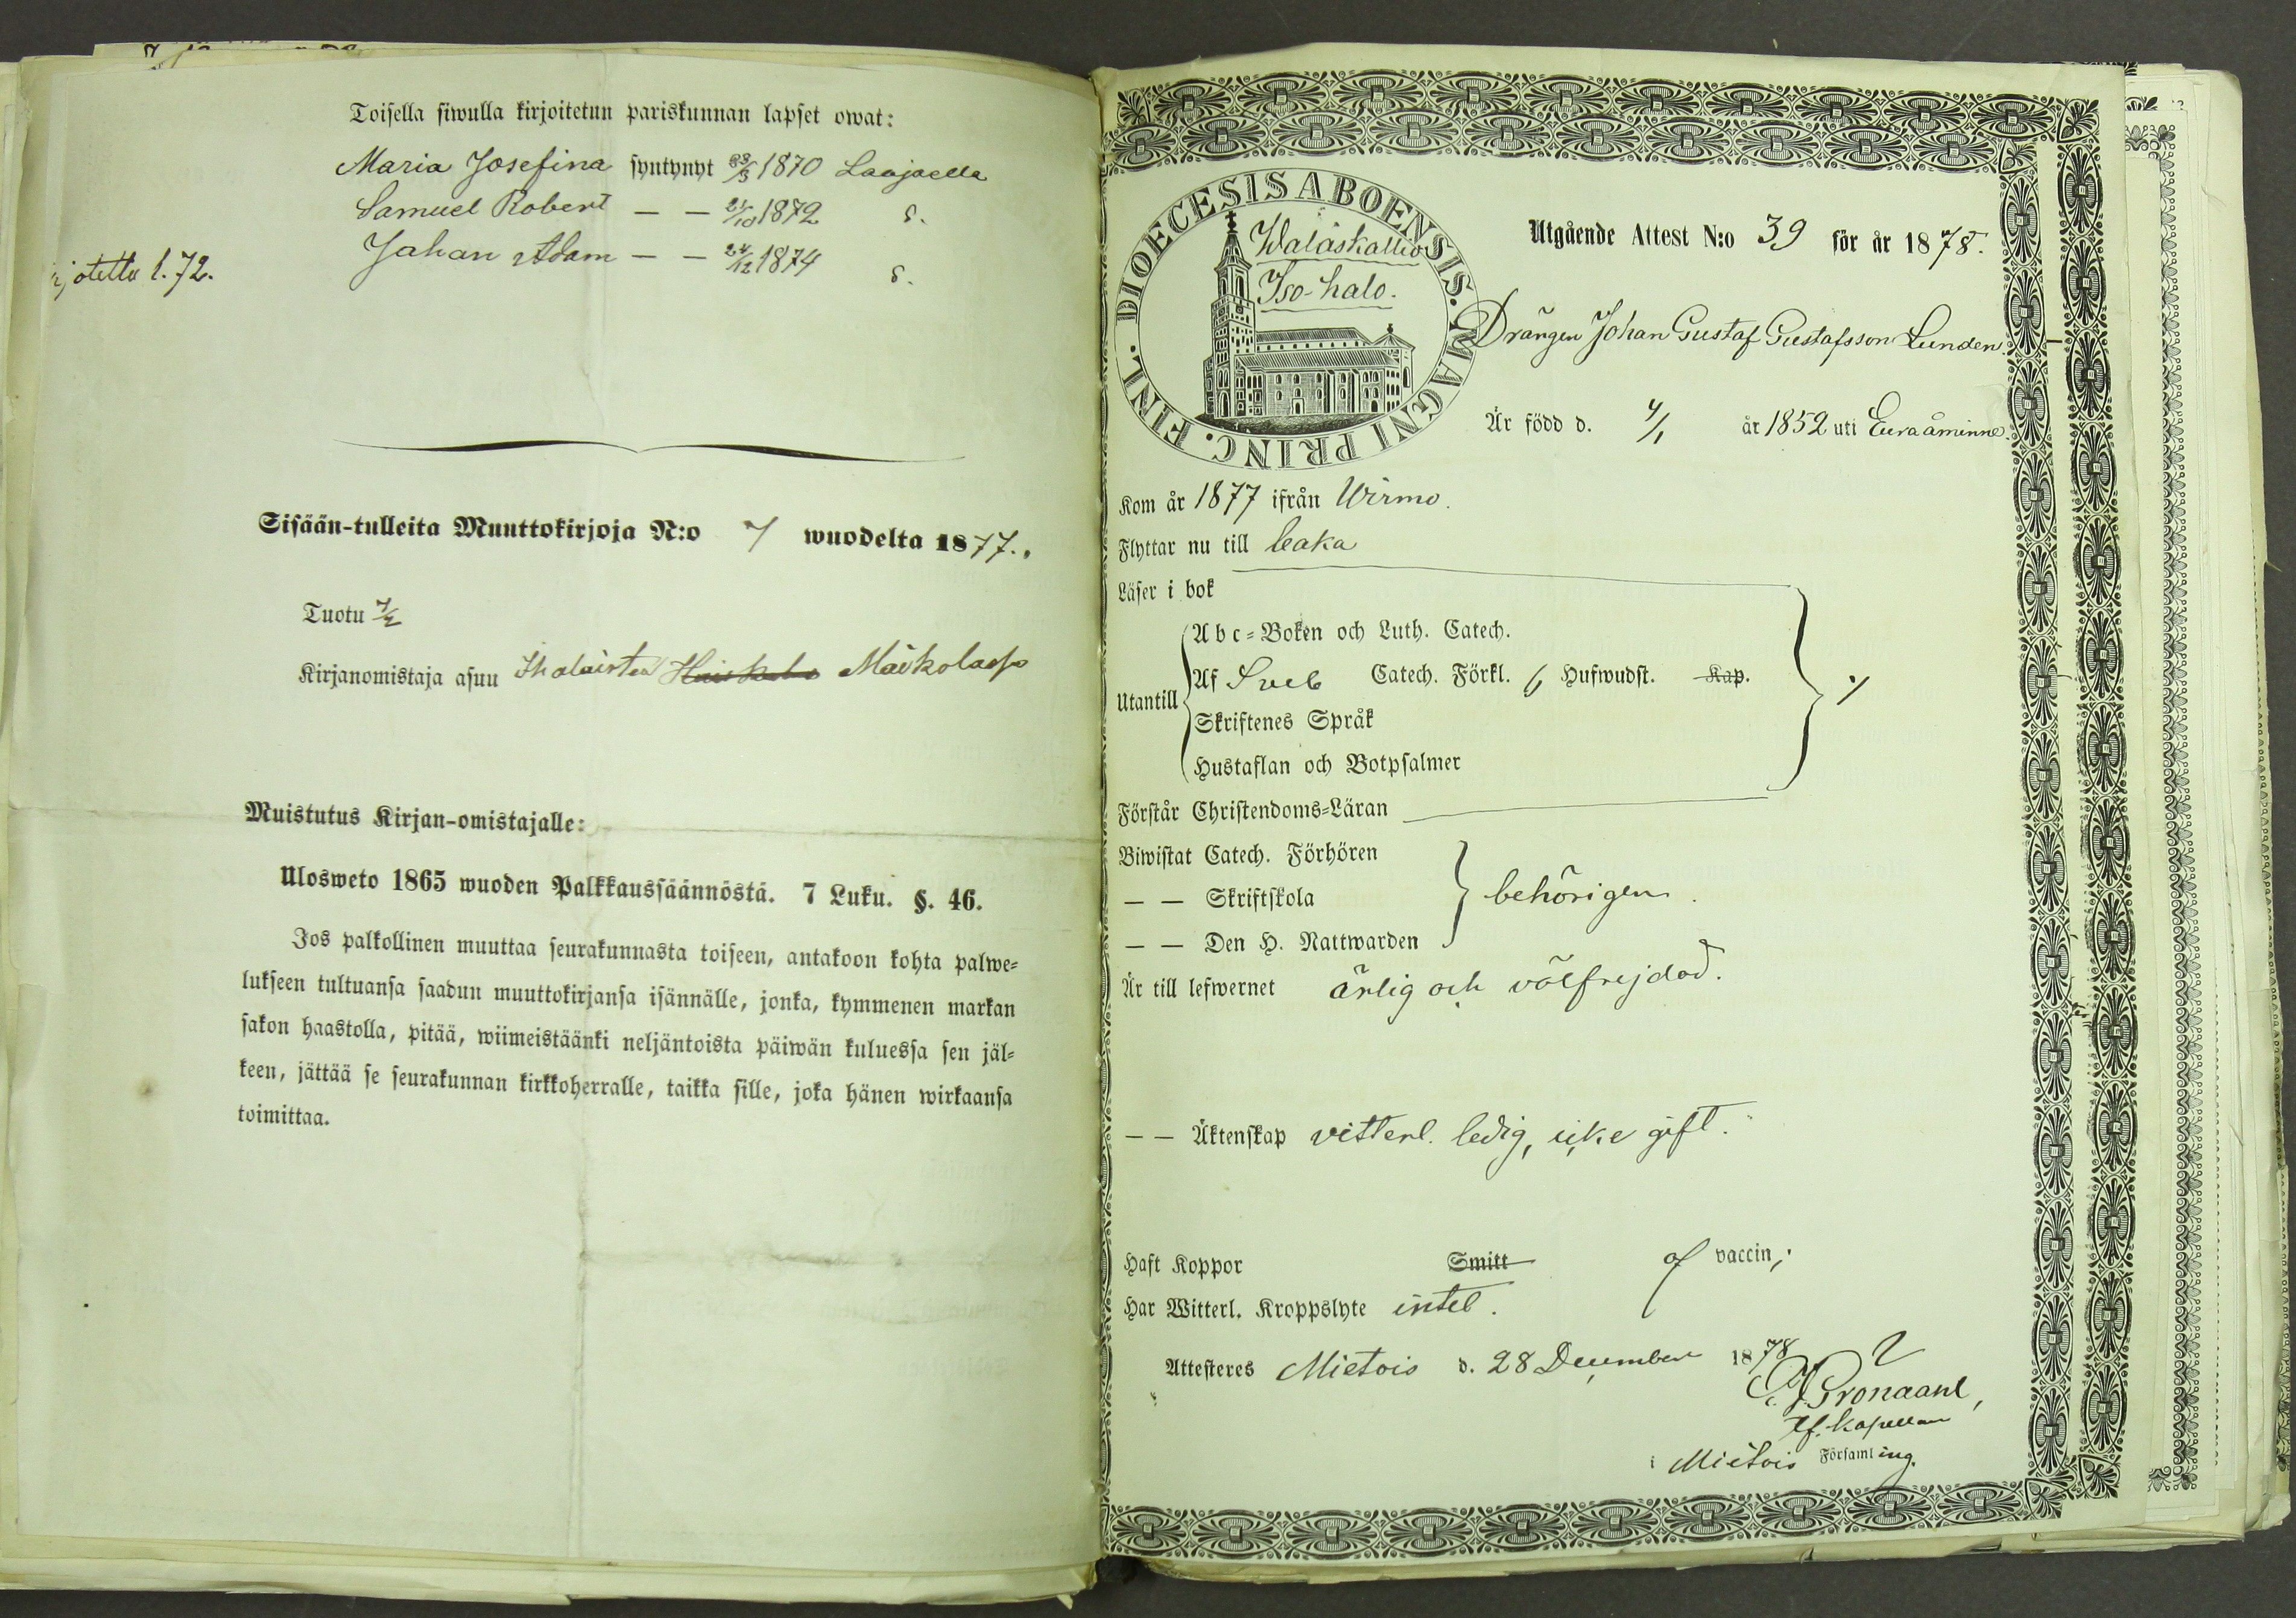 Toisella siwulla kirjoitetun pariskunnan lapset owat:
Maria Josefina syntynyt 23/3 1870 Laajoella
Samuel Robert — — 21/10 1872 S.
Johan Adam — — 24/12 1874 S.
jotettu l. 72.
Sisään-tulleita Muuttokirjoja N:o 7 wuodelta 1877.
Tuotu
Kirjanomistaja asuu Ihalaisten Maikolaso
Muistutus Kirjan-omistajalle:
Ulosweto 1865 wuoden Palkkaussäännöstä. 7 Luku. §. 46.
Jos palkollinen muuttaa seurakunnasta toiseen, antakoon kohta palwe=
lukseen tultuansa saadun muuttokirjansa isännälle, jonka, kymmenen markan
sakon haastolla, pitää, wiimeistäänki neljäntoista päiwän kuluessa sen jäl=
keen, jättää se seurakunnan kirkkoherralle, taikka sille, joka hänen wirkaansa
toimittaa.
DIOECESIS ABOENSIS. MAGNI PRINC. FINL.
Walaskallio
Iso-halo.
Utgående Attest N:o 39 för år 1878.
Drängen Johan Gustaf Gustafsson Lunden.
Är född d. 4/1 år 1852 uti Euraåminne.
Kom år 1877 ifrån Wirmo.
Flyttar nu till
Läser i bok
Utantill
Abc=Boken och Luth. Catech.
Af Sveb Catech. Förkl. 6 Hufwudst. Kap.
Skriftenes Språk
Hustaflan och Botpsalmer
Förstår Christendoms=Läran
Biwistat Catech. Förhören
— — Skriftskola behörigen.
— — Den H. Nattwarden
Är till lefwernet ärlig och välfrejdad.
— — Äktenskap vitterl. ledig, icke gift.
Haft Koppor Smitt af vaccin,
Har Witterl. Kroppslyte intet.
Attesteres Mietois d. 28 December 1878
Gronaanl,
Kapellan
i Mietois Församling.